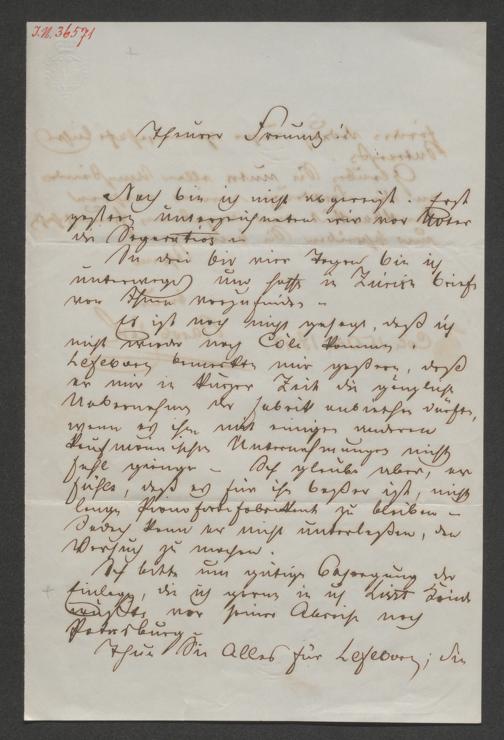 I.N. 36571
Theurer Freund!
Noch bin ich nicht abgereist. Erst
gestern unterzeichneten wir vor Notar
die Separation.
In drei bis vier Tagen bin ich
unterwegs und hoffe in Zürich Briefe
von Ihnen vorzufinden –
Es ist noch nicht gesagt, daß ich
nicht wieder nach Cöln komme.
Lefebvre bemerkte mir gestern, daß
er mir in kurzer Zeit die gänzliche
Uebernahme der Fabrik anbiethen dürfte,
wenn es ihm mit einigen anderen
kaufmännischen Unternehmungen nicht
fehl ginge – Ich glaube aber, er
fühlt, daß es für ihn besser ist, nicht
lange Pianofortefabrikant zu bleiben –
Jedoch kann er nicht unterlaßen, den
Versuch zu machen.
Ich bitte um gütige Besorgung der
Einlage, die ich gerne in Liszt Hände
wüßte vor seiner Abreise nach
Petersburg –
Thun Sie Alles für Lefebvre; die